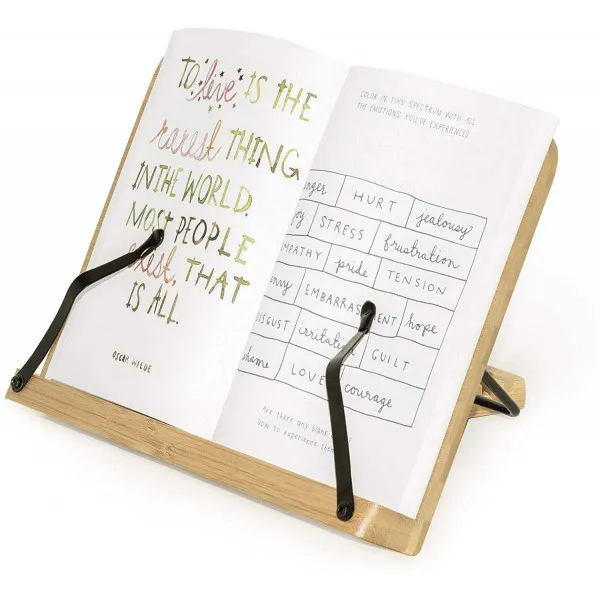 TO live IS THE
rarest THING
IN THE WORLD.
MOST PEOPLE
exist, THAT
IS ALL.
OSCAR WILDE
COLOR IN THIS SPECTRUM WITH ALL
THE EMOTIONS YOU'VE EXPERIENCED
nger HURT jealousy
oy STRESS frustration
MPATHY pride TENSION
nvy EMBARRAS ENT hope
DISGUST irritati GUILT
shame LOVE courage
Are there any blank
How to experience them